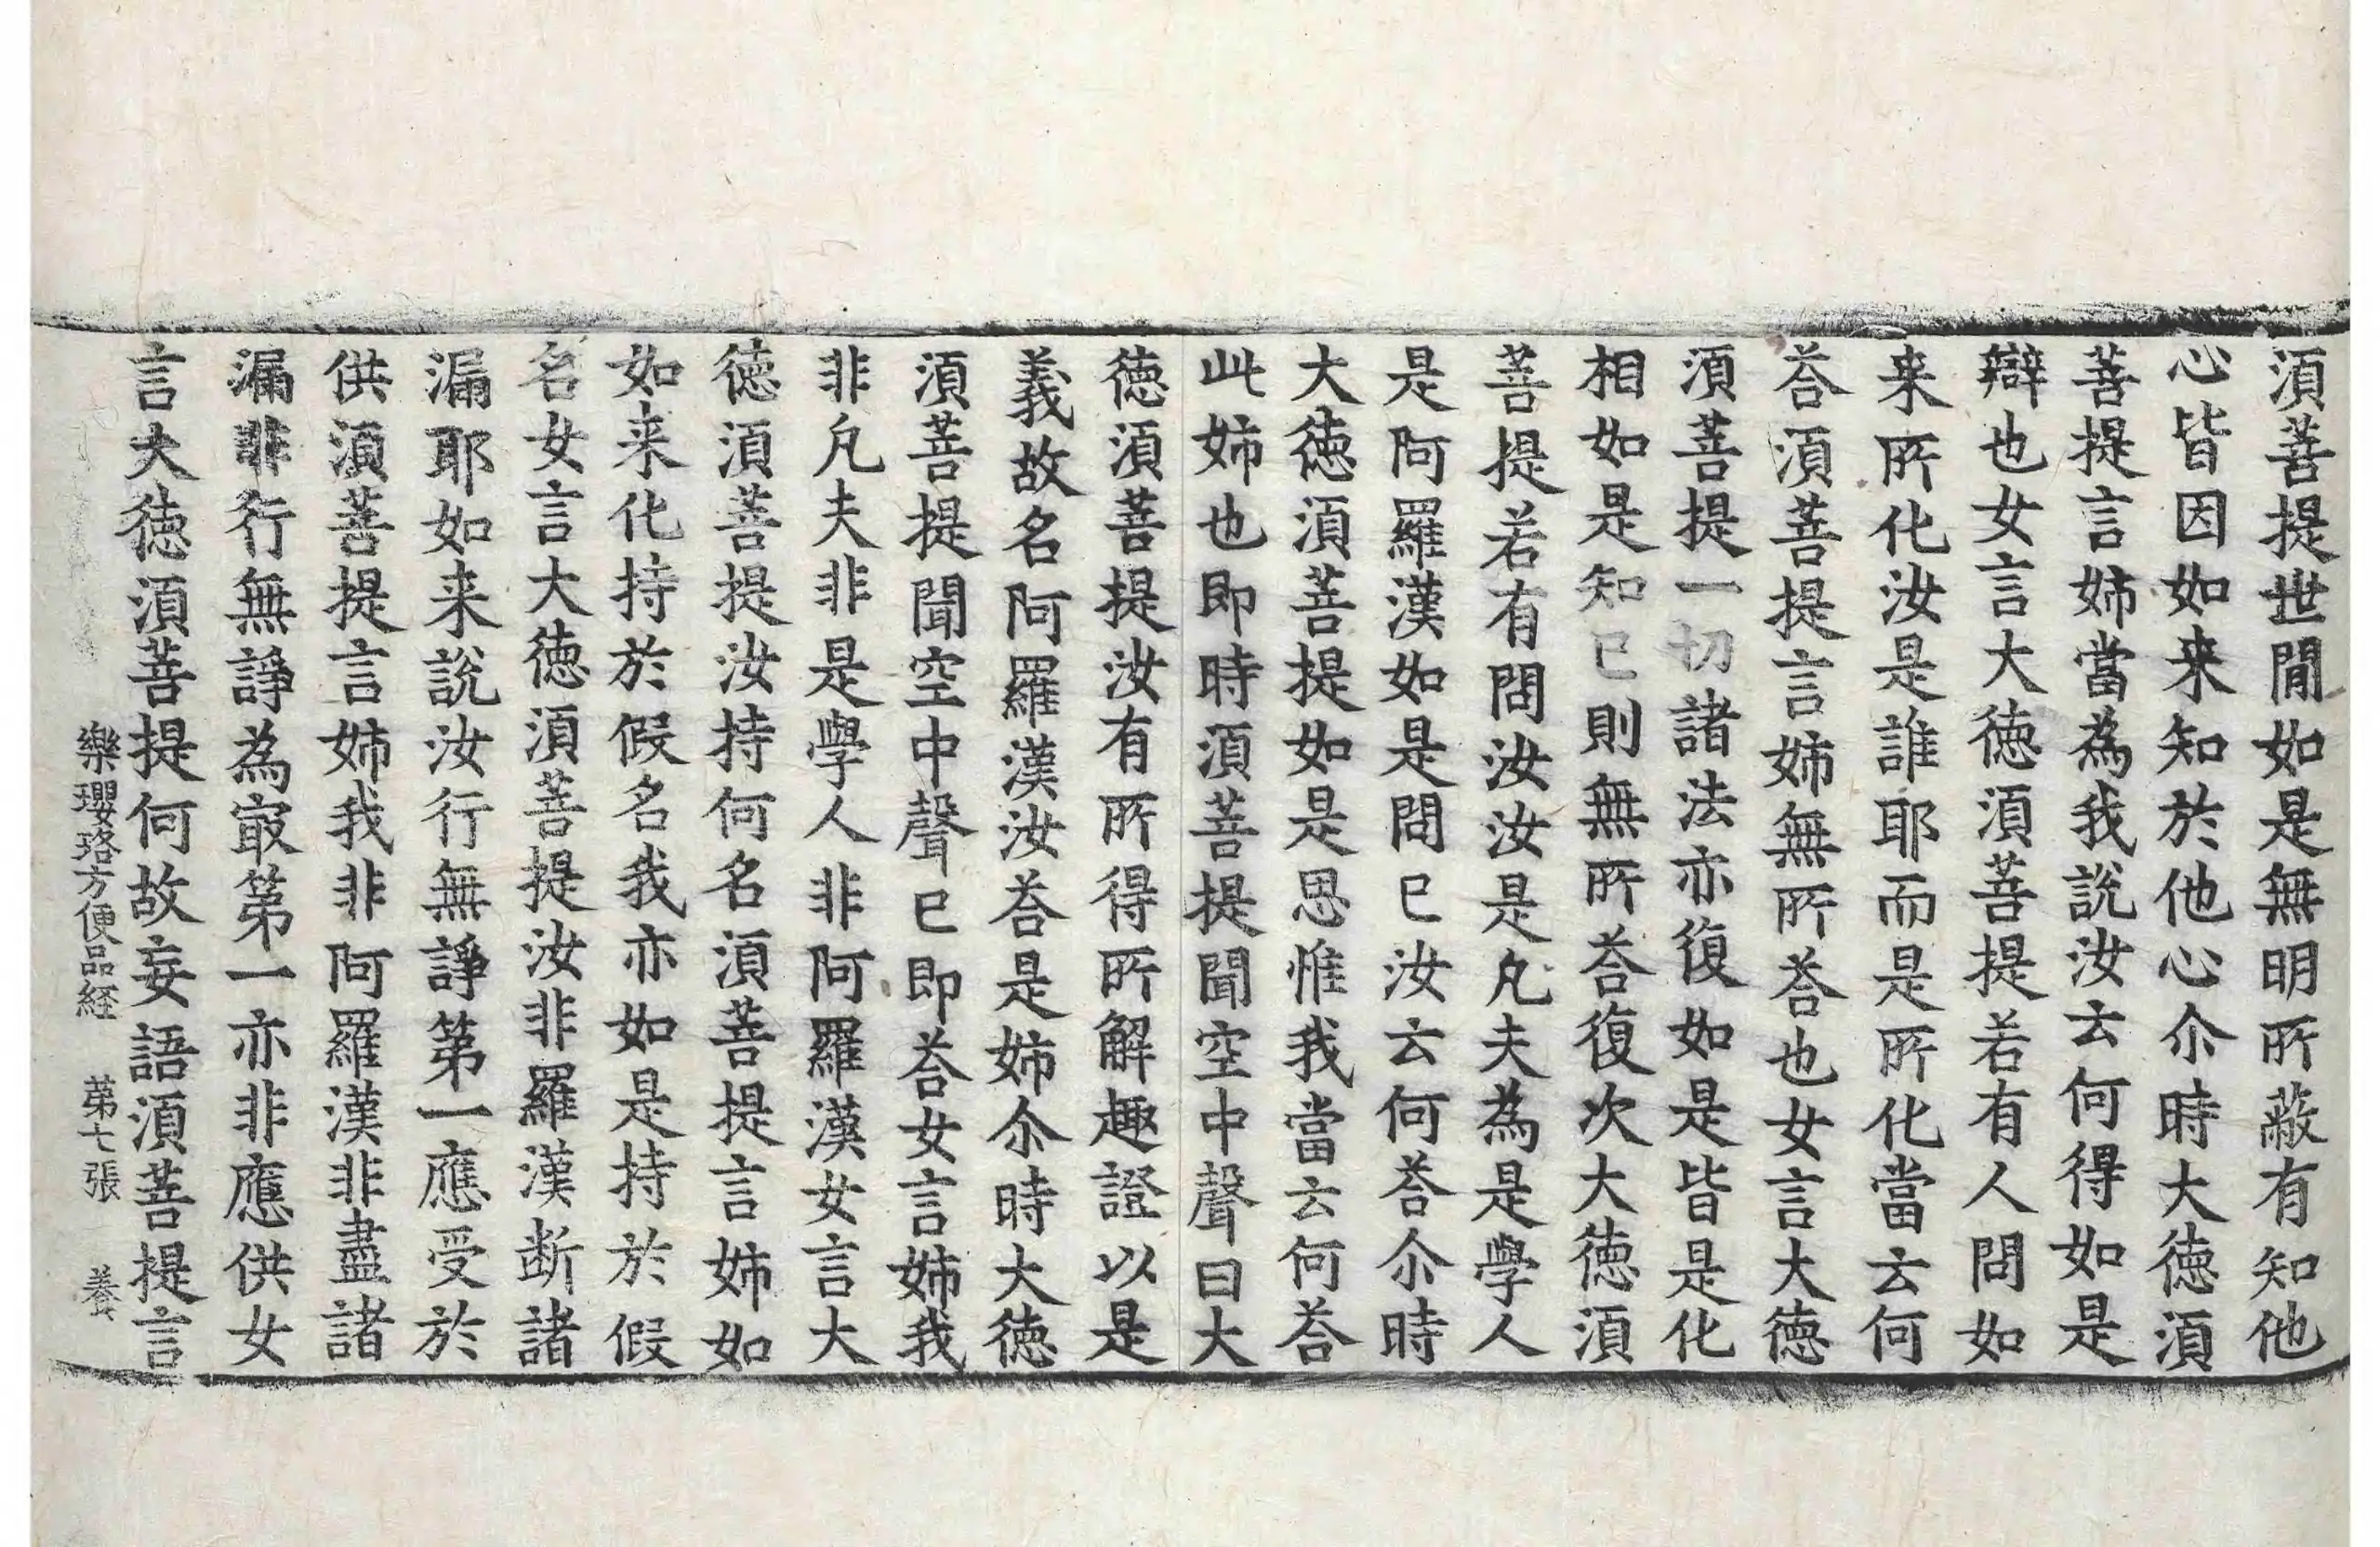 湏菩提世閒如是無明所蔽有知他
心皆因如来知於他心尒時大徳湏
菩提言姉當為我說汝云何得如是
辯也女言大徳湏菩提若有人問如
来所化汝是誰耶而是所化當云何
荅湏菩提言姉無所荅也女言大徳
湏菩提一切諸法亦復如是皆是化
相如是知已則無所荅復次大徳湏
菩提若有問汝汝是凡夫為是學人
是阿羅漢如是問已汝云何荅尒時
大徳湏菩提如是思惟我當云何荅
此姉也即時湏菩提聞空中聲曰大
徳湏菩提汝有所得所解趣證以是
義故名阿羅漢汝荅是姉尒時大徳
湏菩提聞空中聲已即荅女言姉我
非凡夫非是學人非阿羅漢女言大
徳湏菩提汝持何名湏菩提言姉如
如来化持於假名我亦如是持於假
名女言大徳湏菩提汝非羅漢断諸
漏耶如来說汝行無諍第一應受於
供湏菩提言姉我非阿羅漢非盡諸
漏非行無諍為㝡第一亦非應供女
言大徳湏菩提何故妄語湏菩提言
樂瓔珞方便品経　第七張　養